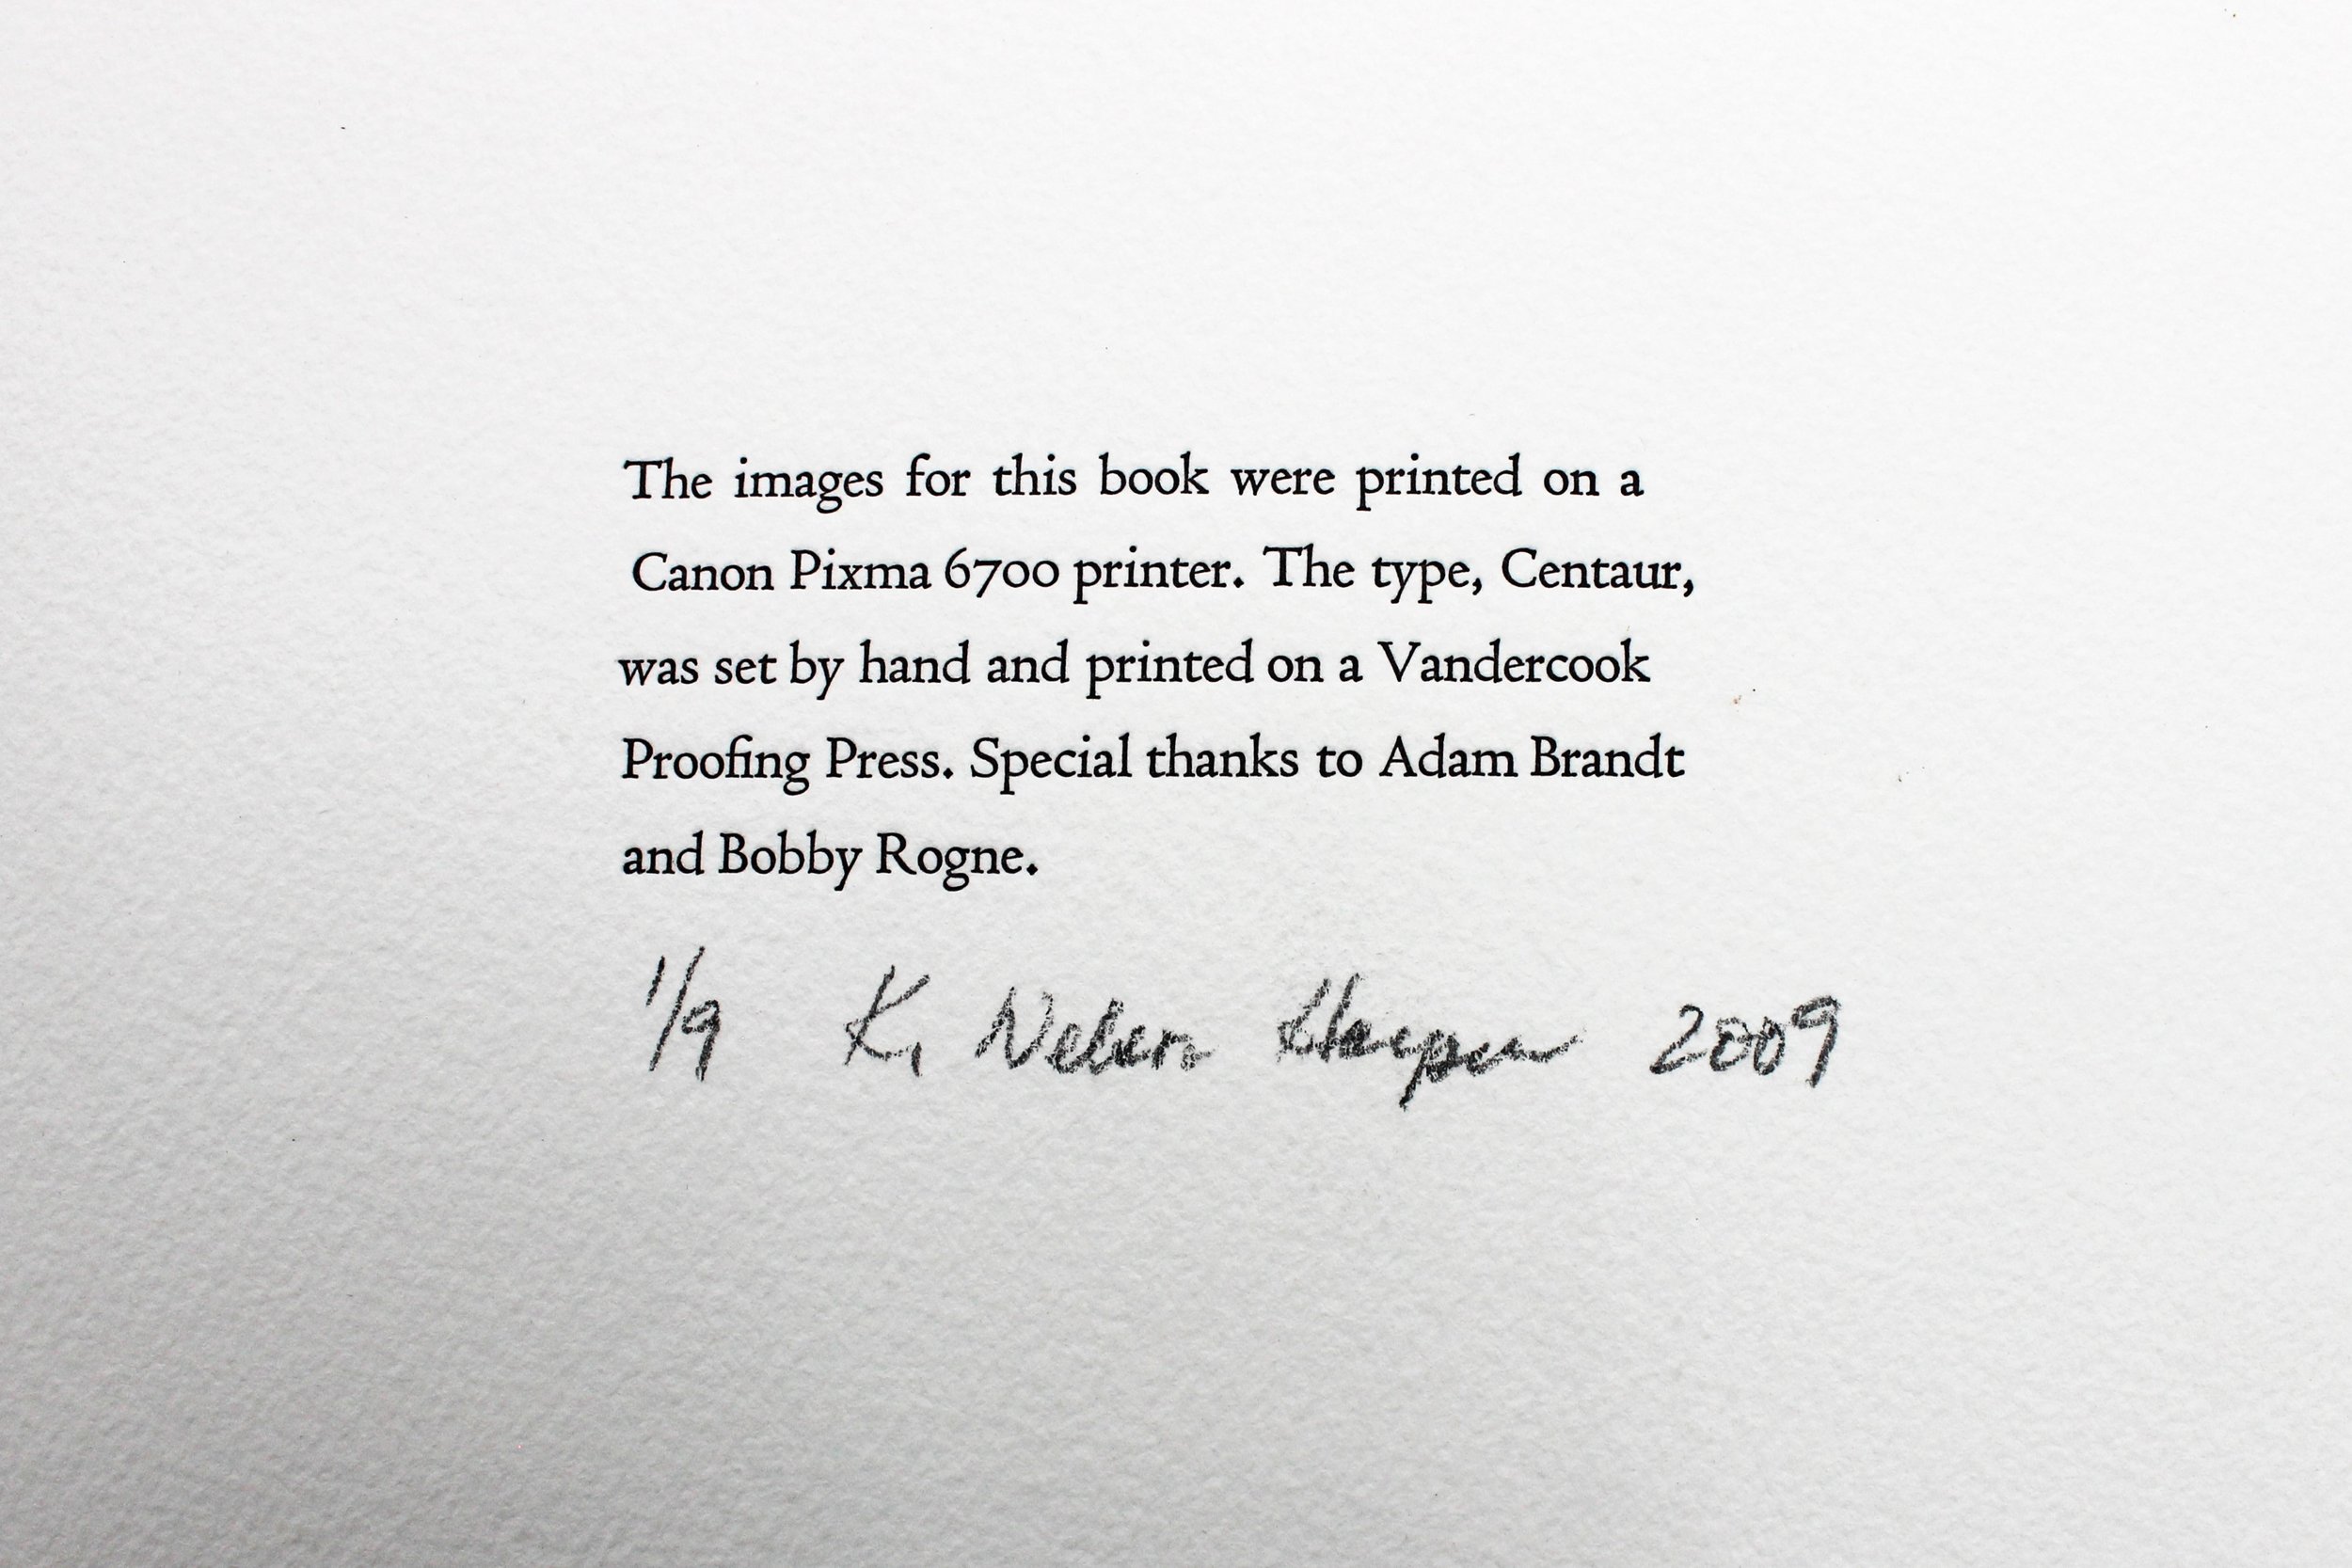 The images for this book were printed on a
Canon Pixma 6700 printer. The type, Centaur,
was set by hand and printed on a Vandercook
Proofing Press. Special thanks to Adam Brandt
and Bobby Rogne.
1/9 K. Nelson Harper 2009